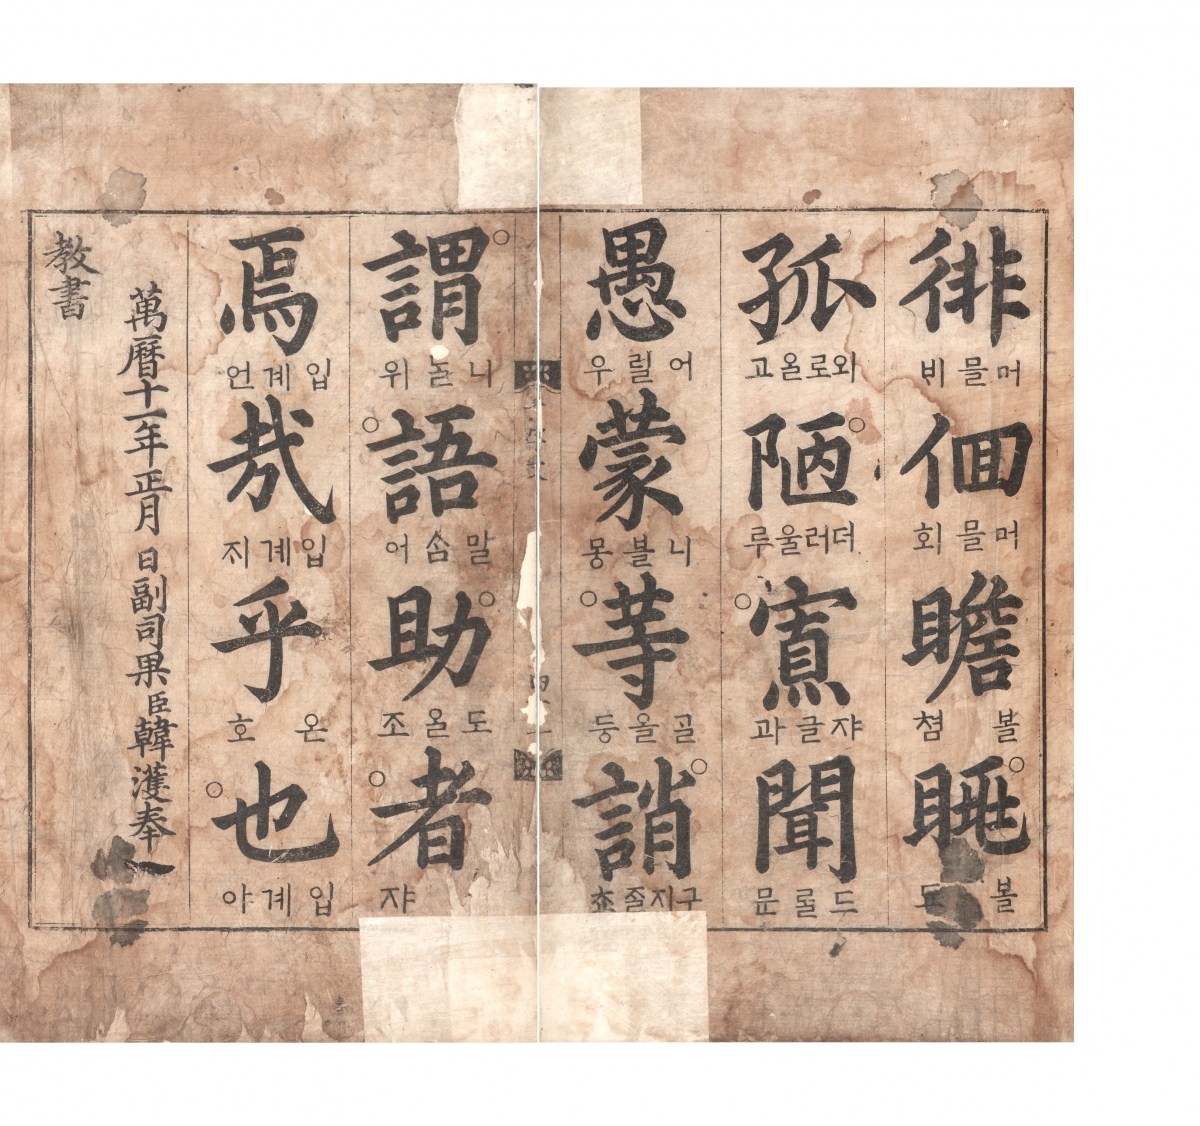 徘
머믈비
徊
머믈회
瞻
볼쳠
眺
볼됴
孤
외로올고
陋
더러울루
寡
쟈글과
聞
드를문
愚
어릴우
蒙
니블몽
等
골올등
誚
구지줄쵸
謂
위
語
말ᄉᆞᆷ어
助
도올조
者
쟈
焉
입계언
哉
입계ᄌᆡ
乎
온호
也
입계야
萬曆十一年正月 日副司果臣韓濩奉
敎書